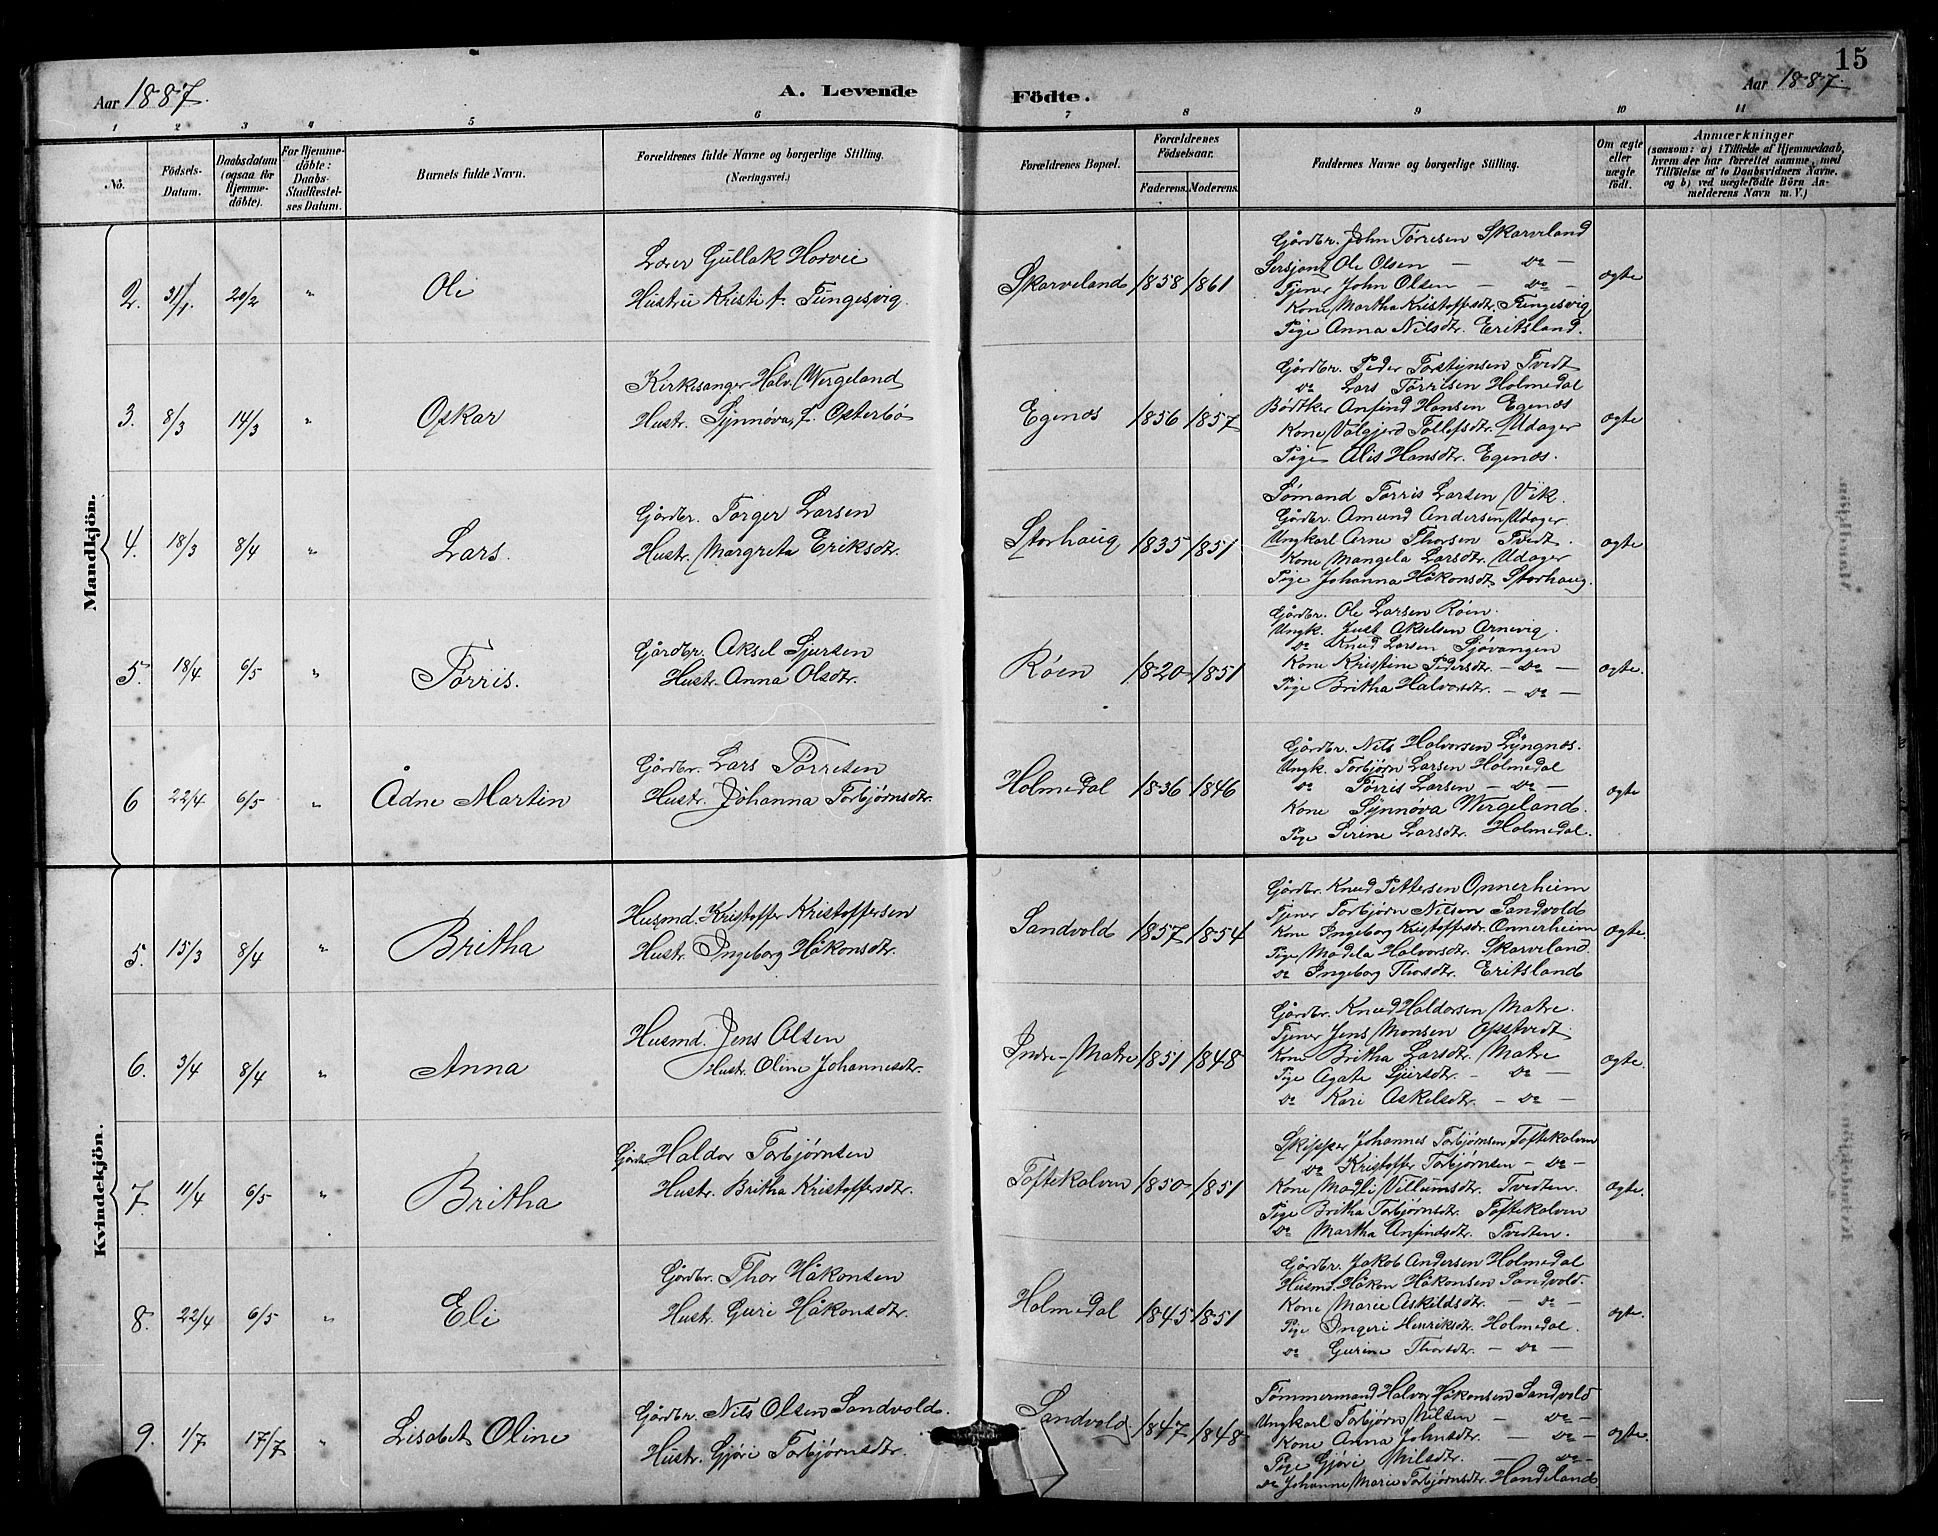 15
Aar 1887.
A. Levende Födte.
Aar 1887.
1 2 3 4 5 6 7 8 9 10 11
No.
Födsels-Datum.
Daabsdatum (ogsaa for Hjemmedöbte).
For Hjemmedöbte: Daabs-Stadfestelses Datum.
Barnets fulde Navn.
Forældrenes fulde Navne og borgerlige Stilling. (Næringsvei.)
Forældrenes Bopæl.
Forældrenes Födselsaar.
Faderens. Moderens.
Faddernes Navne og borgerlige Stilling.
Om ægte eller uægte födt.
Anmærkninger
(saasom: a) i Tilfælde af Hjemmedaab,
hvem der har forrettet samme, med
Tilföielse af to Daabsvidners Navne.
og b) ved uægtefödte Börn Anmelderens Navn m. V.)
Mandkjön.
2. 31/1 20/2 " Ole
Lærer Gullak Horvei
Hustru Kristi f. Tungesvig.
Skarveland 1858 1861
Gårdbr. John Tørresen Skarveland
Sersjant Ole Olsen — do —
Tjener John Olsen — do —
Kone Martha Kristoffsdtr. Tungesvig
Pige Anna Nilsdtr. Eritsland.
ægte
3. 8/3 14/3 " Oskar
Kirkesanger Halv. Wergeland
Hustr. Synnøva, f. Østerbø
Egenæs 1856 1857
Gårdbr. Peder Torstensen Tvedt
do Lars Tørrisen Holmedal
Bødtker Anfind Hansen Egenæs
Kone Valgjerd Tollefsdtr. Udager
Pige Alis Hansdtr. Egenæs.
ægte
4. 18/3 8/4 " Lars.
Gårdbr. Torger Larsen
Hustr. Margreta Eriksdtr.
Storhaug 1835 1851
Sømand Tørris Larsen Vik.
Gårdbr. Amund Andersen Udager
Ungkarl Arne Thorsen Tvedt.
Kone Mangela Larsdtr. Udager
Pige Johanna Håkonsdtr. Storhaug.
ægte
5. 18/4 6/5 " Tørris.
Gårdbr. Aksel Sjursen
Hustr. Anna Olsdtr.
Røen 1820 1851
Gårdbr. Ole Larsen Røen.
Ungk. Just Akselsen Arnevig.
do Knud Larsen Sjøvangen
Kone Kristine Pedersdtr. — do —
Pige Britha Halvorsdtr. — do —
ægte.
6 22/4 6/5 " Ådne Martin
Gårdbr. Lars Tørresen
Hustr. Johanna Torbjørnsdtr.
Holmedal 1836 1846
Gårdbr. Nils Halvorsen Lyngnes.
Ungk. Torbjørn Larsen Holmedal
do Tørris Larsen — do —
Kone Synnøva Wergeland.
Pige Serine Larsdtr. Holmedal.
ægte
Kvindekjön.
5. 15/3 8/4 " Britha
Husmd. Kristoffer Kristoffersen
Hustr. Ingeborg Håkonsdtr.
Sandvold 1857 1854
Gårdbr. Knud Pettersen Onnerheim
Tjener Torbjørn Nilsen Sandvold
Kone Ingeborg Kristoffsdr. Onnerheim
Pige Madela Halvorsdtr. Skarveland.
do Ingeborg Thorsdtr. Eritsland
ægte.
6. 3/4 8/4 " Anna
Husmd. Jens Olsen
Hustr. Oline Johannesdtr.
Indre-Matre 1851 1848
Gårdbr. Knud Haldorsen Matre.
Tjener Jens Monsen Opstvedt
Kone Britha Larsdtr. Matre
Pige Agate Sjursdtr. — do —
do Kari Askelsdtr. — do —
ægte.
7. 11/4 6/5 " Britha
Gårdbr. Haldor Torbjørnsen
Hustr. Britha Kristoffersdtr.
Toftekalven 1850 1851
Skipper Johannes Torbjørnsen Toftekalven
do Kristoffer Torbjørnsen — do —
Kone Madli Villumsdtr. Tvedten.
Pige Britha Torbjørnsdtr. Toftekalven
do Martha Anfindsdtr. Tvedten.
ægte.
8. 22/4 6/5 " Eli
Gårdbr. Thor Håkonsen
Hustr. Guri Håkonsdtr.
Holmedal 1845 1851
Gårdbr. Jakob Andersen Holmedal
Husmd. Håkon Håkonsen Sandvold.
Kone Marie Askildsdtr. — do —
Pige Ingeri Henriksdtr. Holmedal.
do Gurine Thorsdtr. — do —
ægte.
9. 1/7 17/7 " Lisabet Oline
Gårdbr. Nils Olsen Sandvold.
Hustr. Gjøri Torbjørnsdtr.
Sandvold 1847 1848
Tømmermand Halvor Håkonsen Sandvold
Ungkarl Torbjørn Nilsen — do —
Kone Anna Johnsdtr. — do —
Pige Gjøri Nilsdtr. — do —
do Johanne Marie Torbjørnsdtr. Handeland.
ægte.